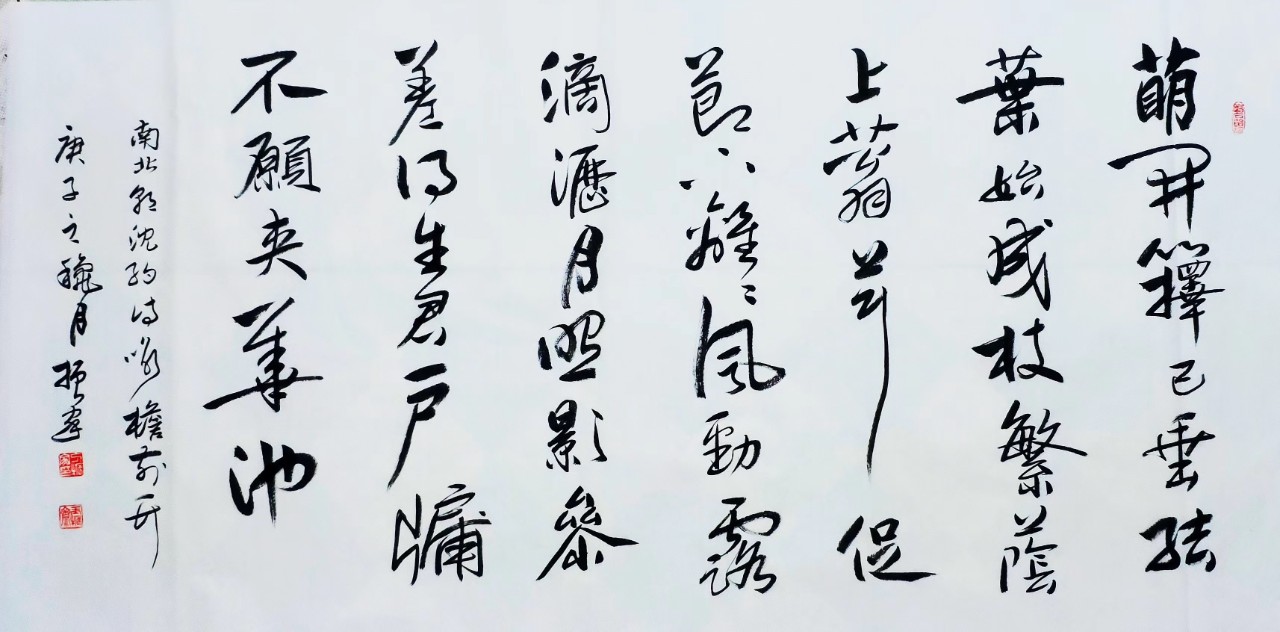 萌開籜已垂結
葉始成枝繁蔭
上蓊茸促
節下離〻風動露
滴瀝月照影參
差得生君戶牖
不願夾華池
南北朝沈約詩咏檐前竹
庚子之臘月